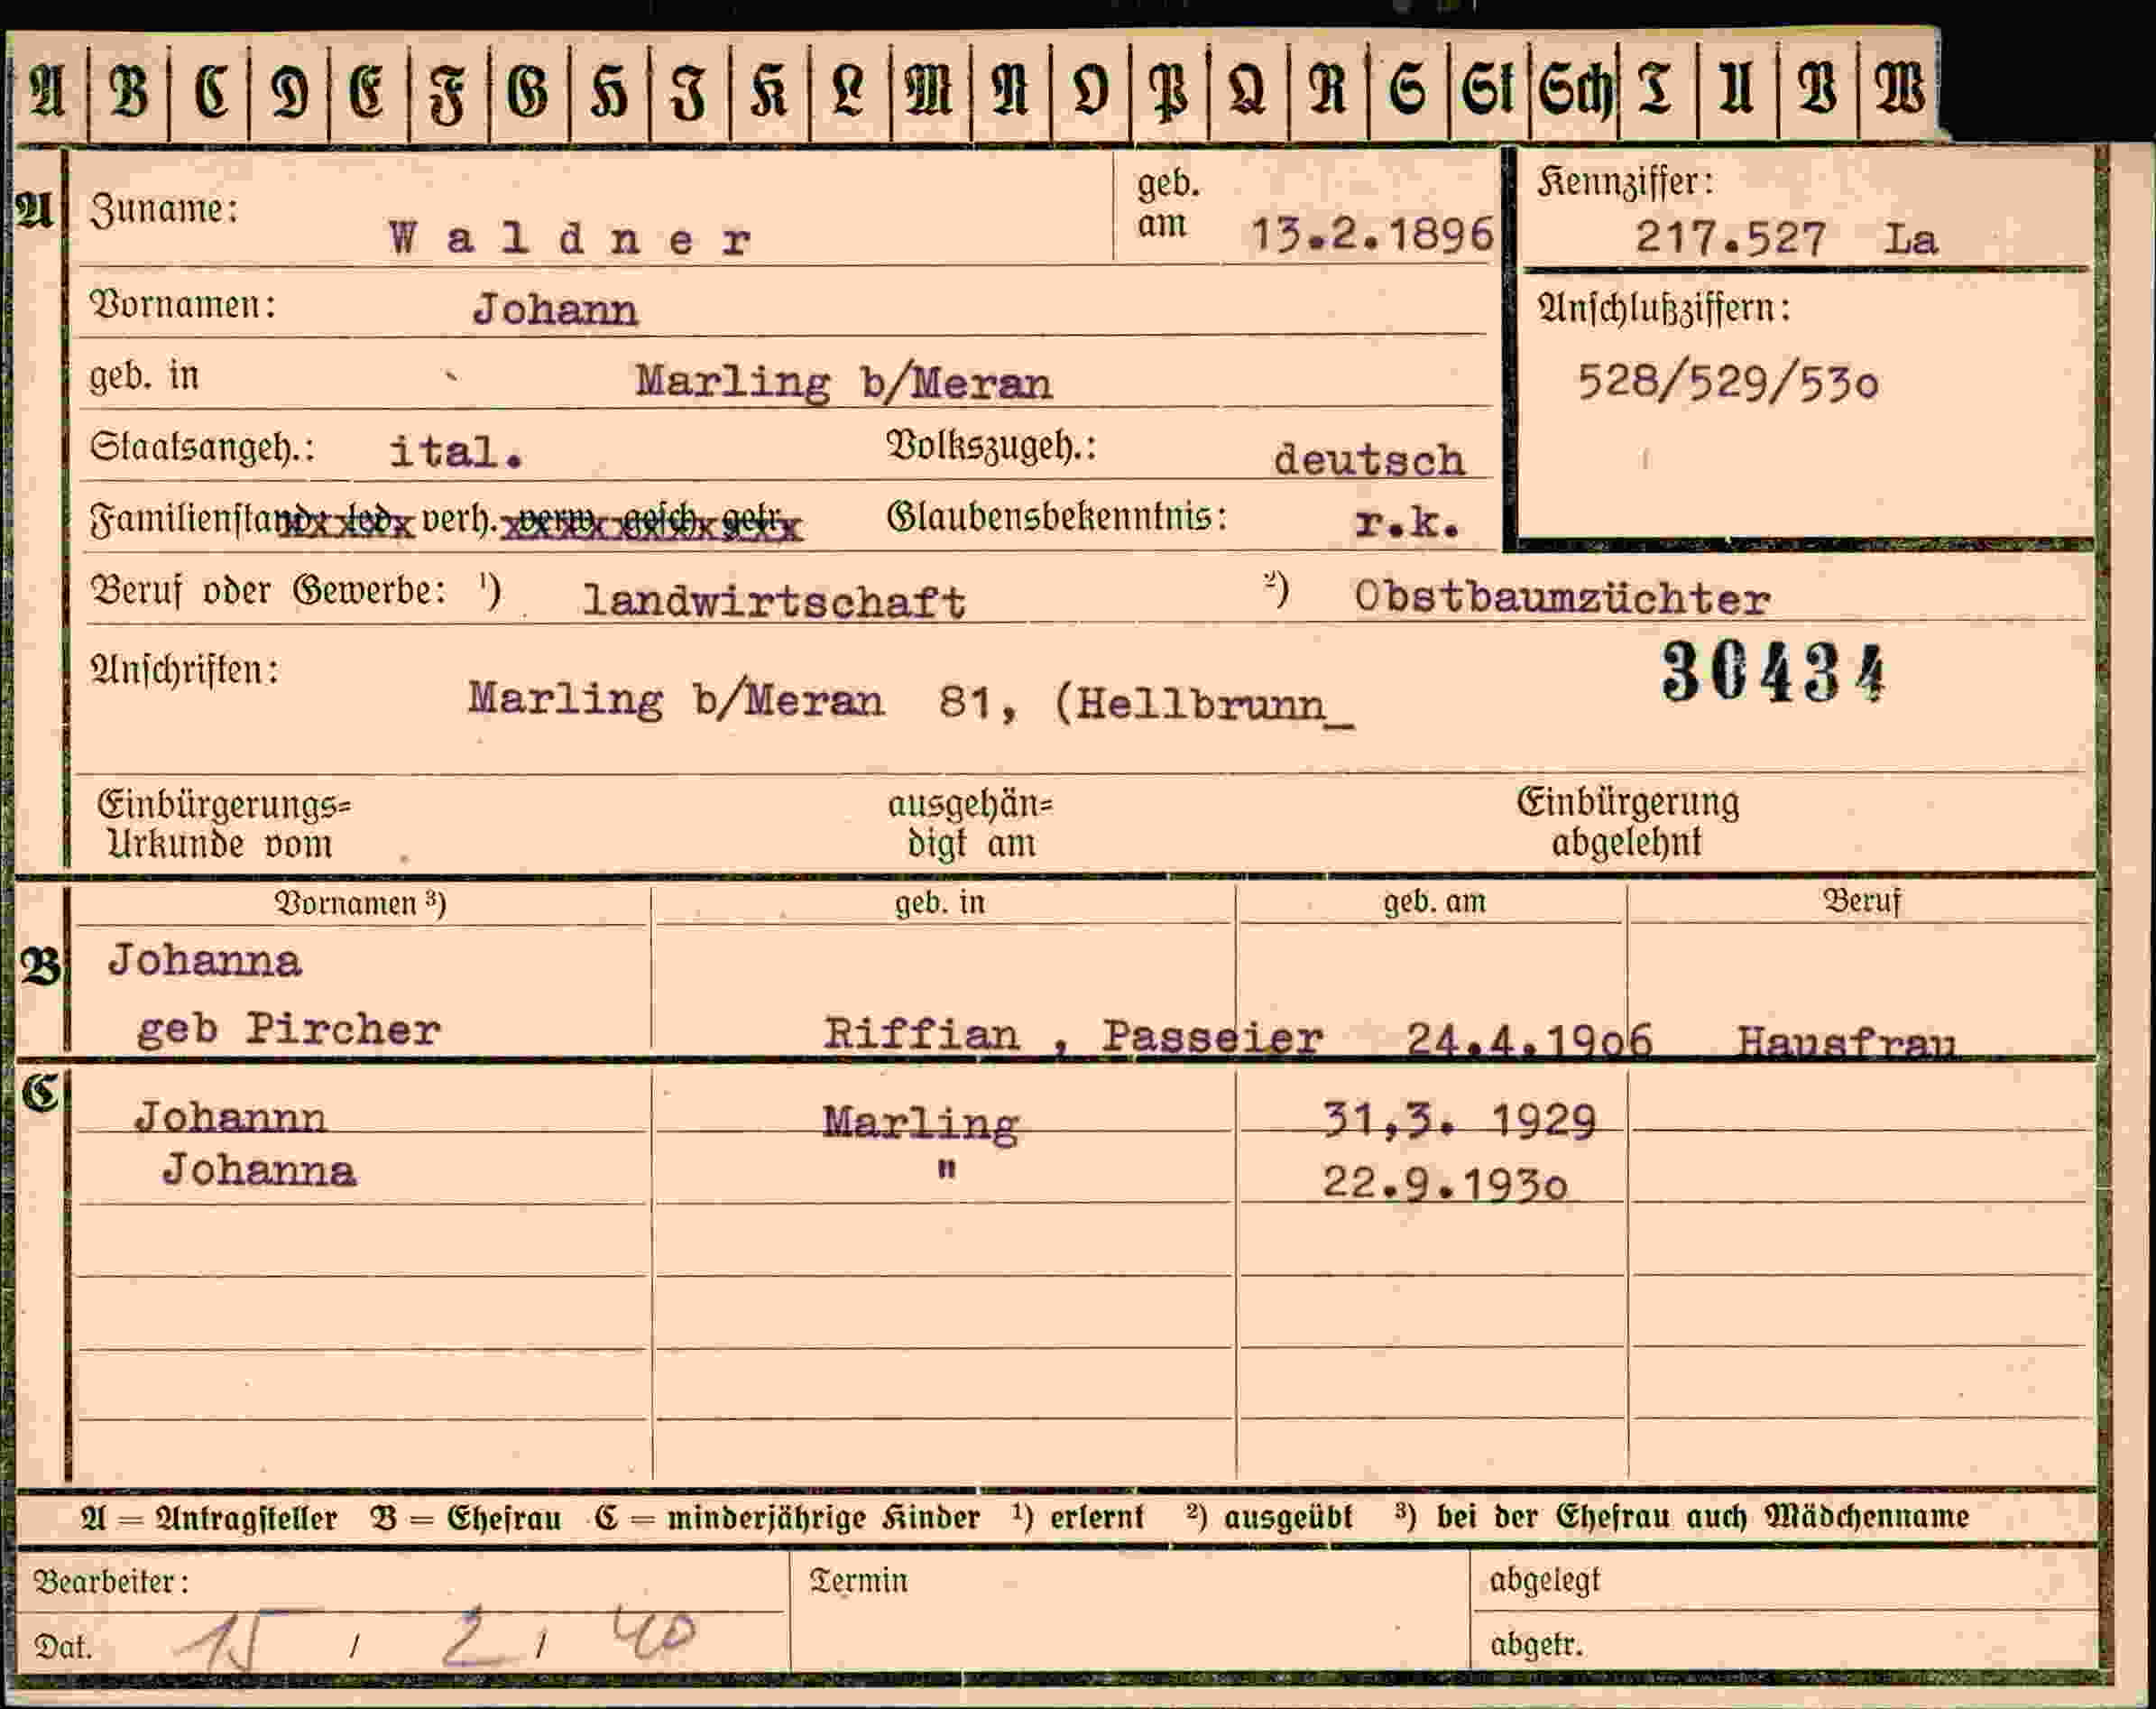 A B C D E F G H I K L M N O P Q R S St Sch T U V W
A Zuname: Waldner geb. am 13.2.1896 Kennziffer: 217.527 La
Vornamen: Johann Anschlußziffern:
geb. in Marling b/Meran 528/529/53o
Staatsangeh.: ital. Volkszugeh.: deutsch
Familienstand: led. verh. verw. gesch. getr. Glaubensbekenntnis: r.k.
Beruf oder Gewerbe: ¹) landwirtschaft ²) Obstbaumzüchter
Anschriften: 30434
Marling b/Meran 81, (Hellbrunn_
Einbürgerungs= ausgehän= Einbürgerung
Urkunde vom digt am abgelehnt
Vornamen ³) geb. in geb. am Beruf
B Johanna
geb Pircher Riffian , Passeier 24.4.19o6 Hausfrau
C Johannn Marling 31,3. 1929
Johanna " 22.9.193o
A = Antragsteller B = Ehefrau C = minderjährige Kinder ¹) erlernt ²) ausgeübt ³) bei der Ehefrau auch Mädchenname
Bearbeiter: Termin abgelegt
Dat. 15 / 2 / 40 abgetr.